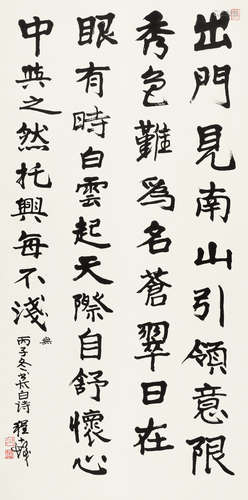 出門見南山引領意限
秀色難為名蒼翠日在
眼有時白雲起天際自舒懷心
中與之然托興每不淺
無
丙子冬录李白诗